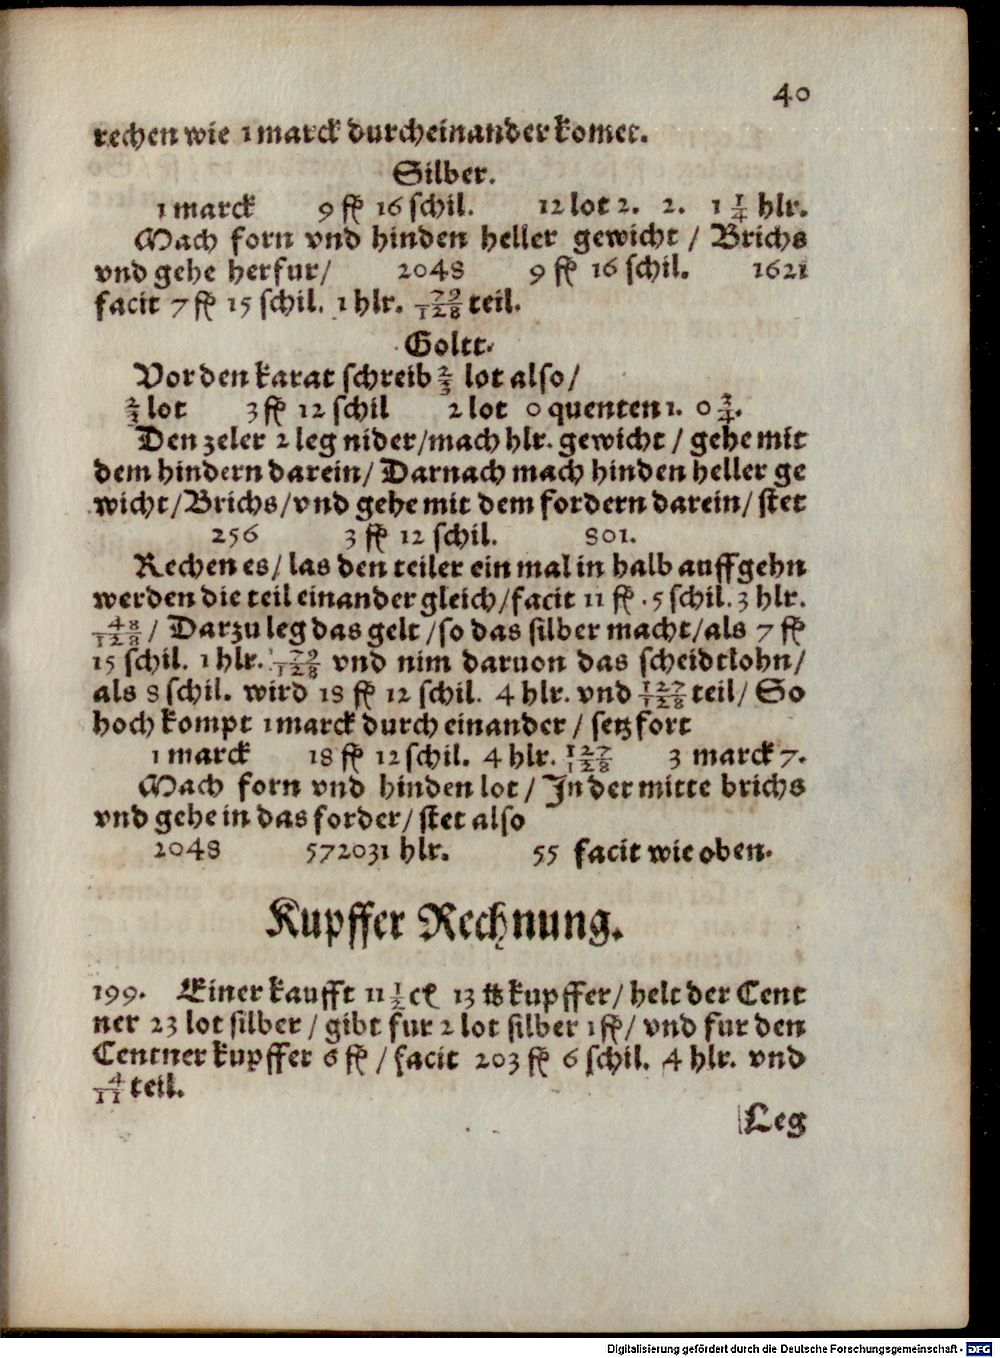 40
rechen wie 1 marck durcheinander komet.
Silber.
1 marck 9 fl 16 schil. 12 lot 2. 2. 1 1/4 hlr.
Mach forn vnd hinden heller gewicht / Brichs
vnd gehe herfur/ 2048 9 fl 16 schil. 1621
facit 7 fl 15 schil. 1 hlr. 79/128 teil.
Goltt.
Vor den karat schreib 2/3 lot also/
2/3 lot 3 fl 12 schil 2 lot 0 quenten 1. 0 3/4.
Den zeler 2 leg nider/mach hlr. gewicht / gehe mit
dem hindern darein/ Darnach mach hinden heller ge
wicht/Brichs/vnd gehe mit dem fordern darein/ stet
256 3 fl 12 schil. 801.
Rechen es/ las den teiler ein mal in halb auffgehn
werden die teil einander gleich/facit 11 fl .5 schil. 3 hlr.
48/128 / Darzu leg das gelt /so das silber macht/als 7 fl
15 schil. 1 hlr. 79/128 vnd nim daruon das scheidtlohn/
als 8 schil. wird 18 fl 12 schil. 4 hlr. vnd 127/128 teil/ So
hoch kompt 1 marck durch einander / setz fort
1 marck 18 fl 12 schil. 4 hlr. 127/128 3 marck 7.
Mach forn vnd hinden lot / In der mitte brichs
vnd gehe in das forder/ stet also
2048 572031 hlr. 55 facit wie oben.
Kupffer Rechnung.
199. Einer kaufft 11 1/2 ct 13 ℔ kupffer/ helt der Cent
ner 23 lot silber / gibt fur 2 lot silber 1 fl/ vnd fur den
Centner kupffer 6 fl / facit 203 fl 6 schil. 4 hlr. vnd
4/11 teil.
Leg
Digitalisierung gefördert durch die Deutsche Forschungsgemeinschaft - DFG